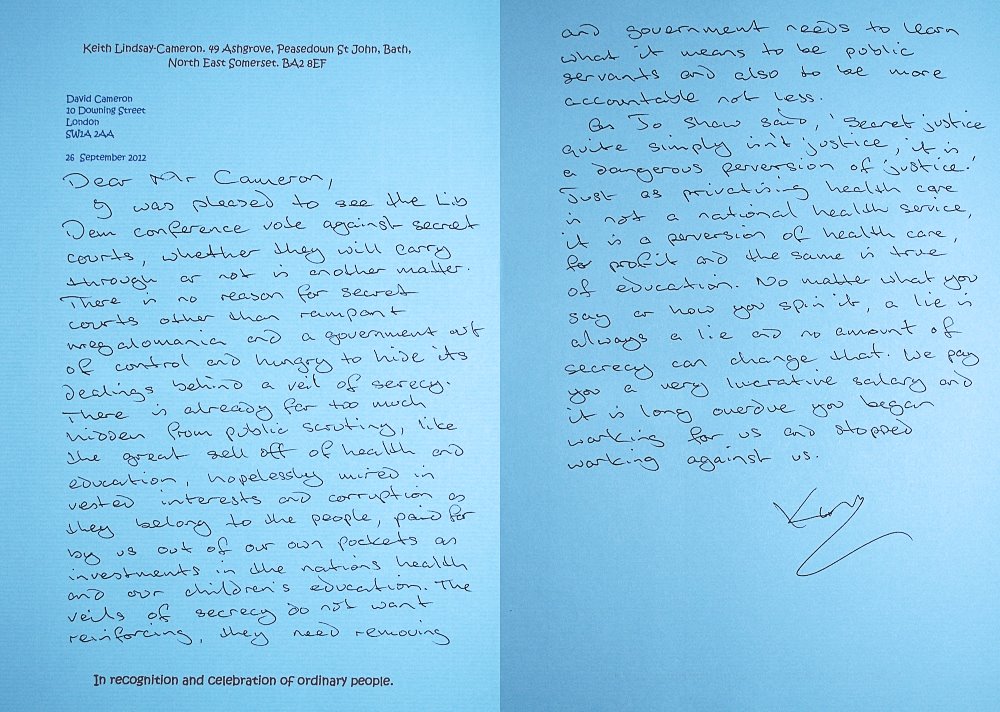 Keith Lindsay-Cameron. 49 Ashgrove, Peasedown St John, Bath,
North East Somerset. BA2 8EF
David Cameron
10 Downing Street
London
SW1A 2AA
26 September 2012
Dear Mr Cameron,
I was pleased to see the Lib
Dem conference vote against secret
courts, whether they will carry
through or not is another matter.
There is no reason for secret
courts other than rampant
megalomania and a government out
of control and hungry to hide its
dealings behind a veil of serecy.
There is already far too much
hidden from public scrutiny, like
the great sell off of health and
education, hopelessly mired in
vested interests and corruption as
they belong to the people, paid for
by us out of our own pockets as
investments in the nations health
and our children's education. The
veils of secrecy do not want
reinforcing, they need removing
In recognition and celebration of ordinary people.
and government needs to learn
what it means to be public
servants and also to be more
accountable not less.
As Jo Shaw said, 'Secret justice
quite simply isn't justice, it is
a dangerous perversion of justice.'
Just as privatising health care
is not a national health service,
it is a perversion of health care,
for profit and the same is true
of education. No matter what you
say or how you spin it, a lie is
always a lie and no amount of
secrecy can change that. We pay
you a very lucrative salary and
it is long overdue you began
working for us and stopped
working against us.